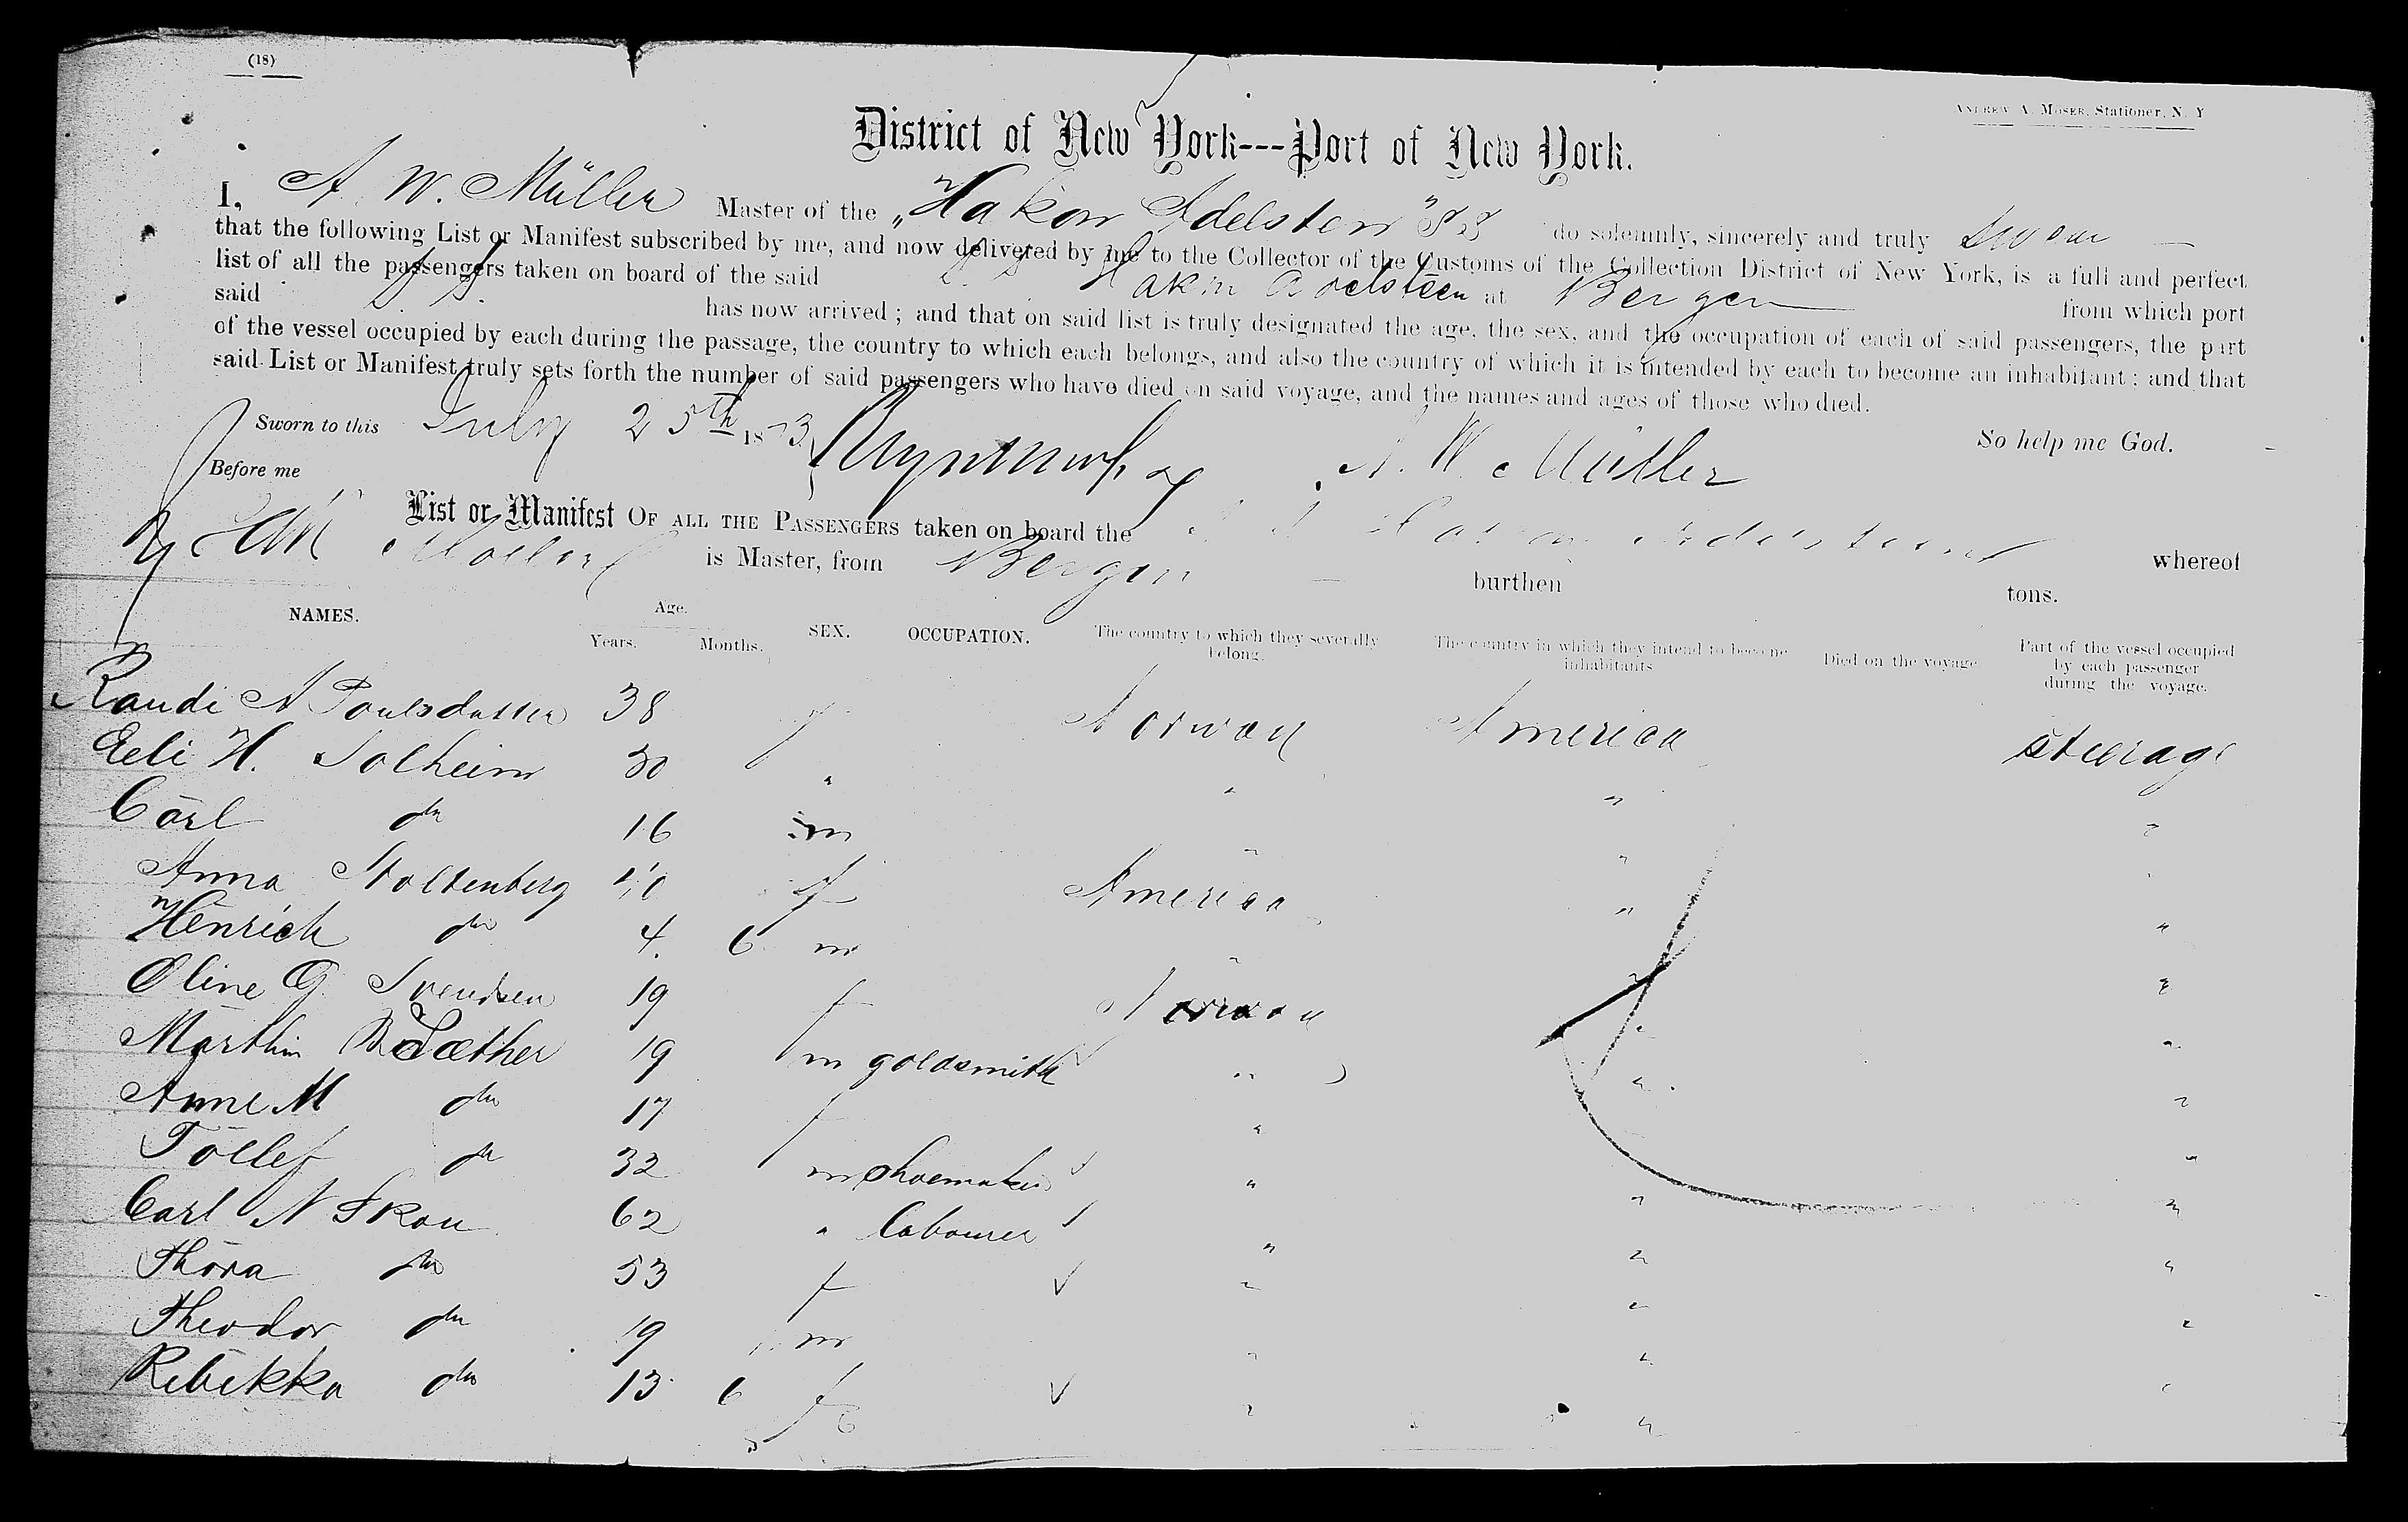 (18)
ANDREW A. MOSER, Stationer, N. Y
District of New York---Port of New York.
I, A. W. Müller Master of the „Hakon Adelsten" SS do solemnly, sincerely and truly swear —
that the following List or Manifest subscribed by me, and now delivered by me to the Collector of the Customs of the Collection District of New York, is a full and perfect
list of all the passengers taken on board of the said S. S. Hakon Adelsteen at Bergen from which port
said S. S. has now arrived; and that on said list is truly designated the age, the sex, and the occupation of each of said passengers, the part
of the vessel occupied by each during the passage, the country to which each belongs, and also the country of which it is intended by each to become an inhabitant: and that
said List or Manifest truly sets forth the number of said passengers who have died on said voyage, and the names and ages of those who died.
So help me God.
Sworn to this July 25th 1873 A. W. Müller
Before me
List or Manifest OF ALL THE PASSENGERS taken on board the S. S. Hakon Adelsteen whereof
Müller is Master, from Bergen — burthen tons.
NAMES. Age. Years. Months. SEX. OCCUPATION. The country to which they severally belong. The country in which they intend to become inhabitants Died on the voyage Part of the vessel occupied by each passenger during the voyage.
Randi A Poulsdatter 38 f Norway America steerage
Eeli H. Solheim 30 " " " "
Carl do 16 m " " "
Anna Stoltenberg 40 f America " "
Henrich do 4. 6 m " " "
Oline G. Svendsen 19 f Norway " "
Marthin B Sæther 19 m goldsmith " " "
Anne M do 17 f " " "
Tollef do 32 m shoemaker " " "
Carl N Skou 62 " labourer " " "
Thora do 53 f " " "
Theodor do 19 m " " "
Rebekka do 13 6 f " " "